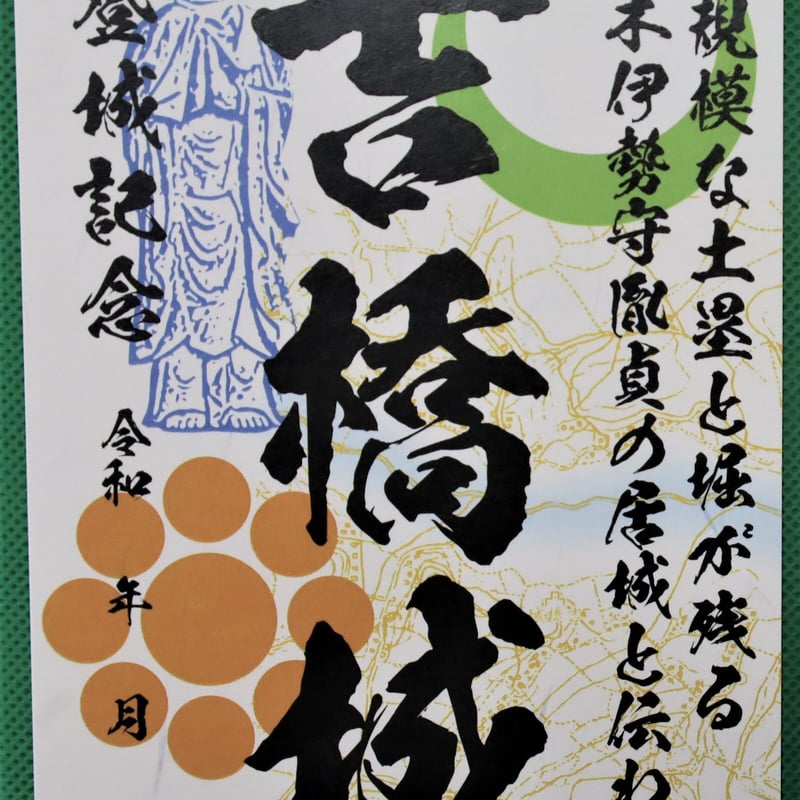 規模な土塁と堀が残る
木伊勢守胤貞の居城と伝わ
吉橋城
登城記念
令和 年 月